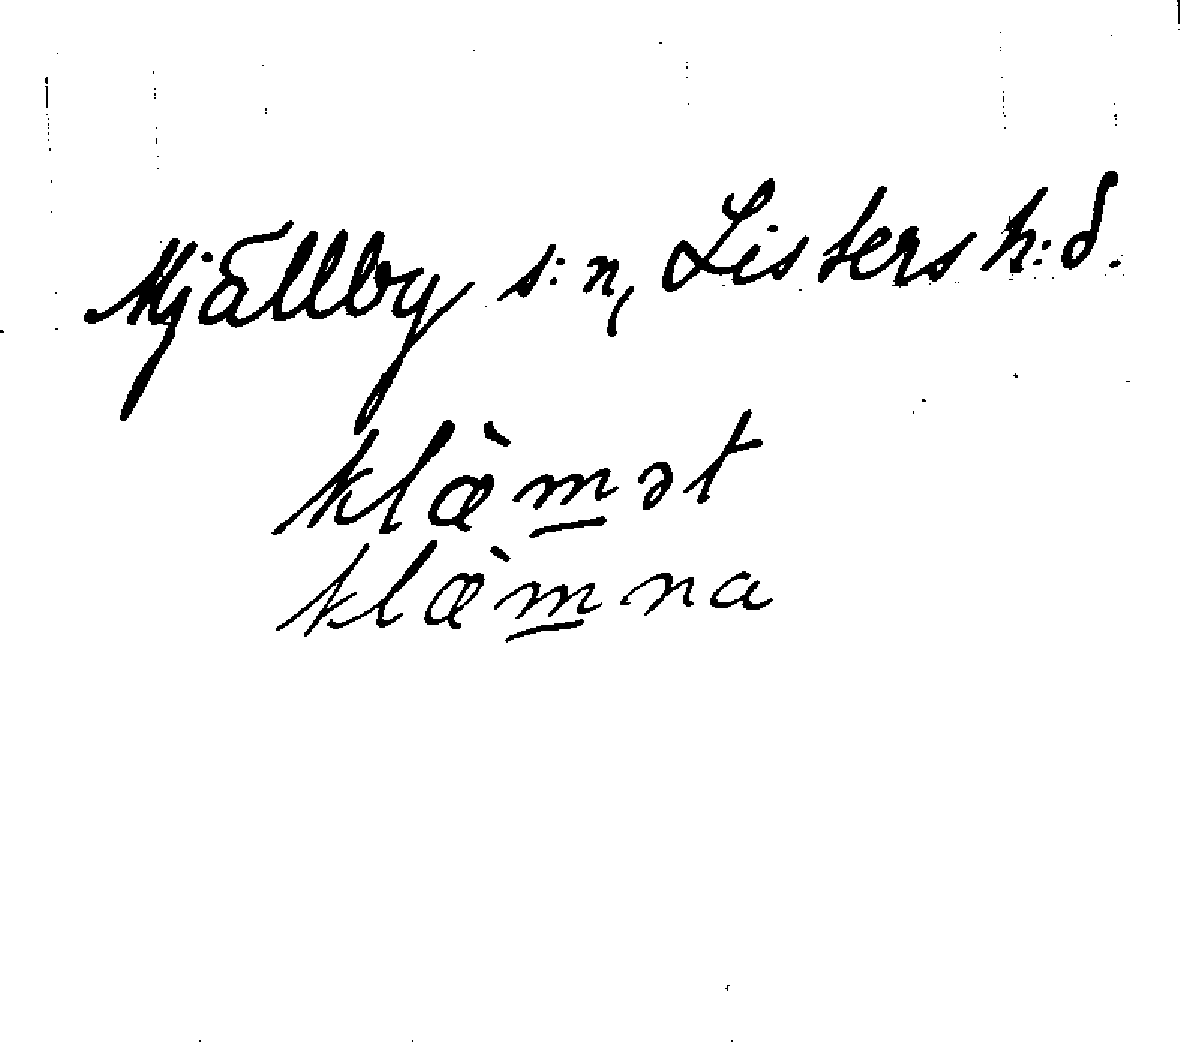 Mjällby s:n, Listers h:d.
klæ̀m̲ət
klæ̀m̲na